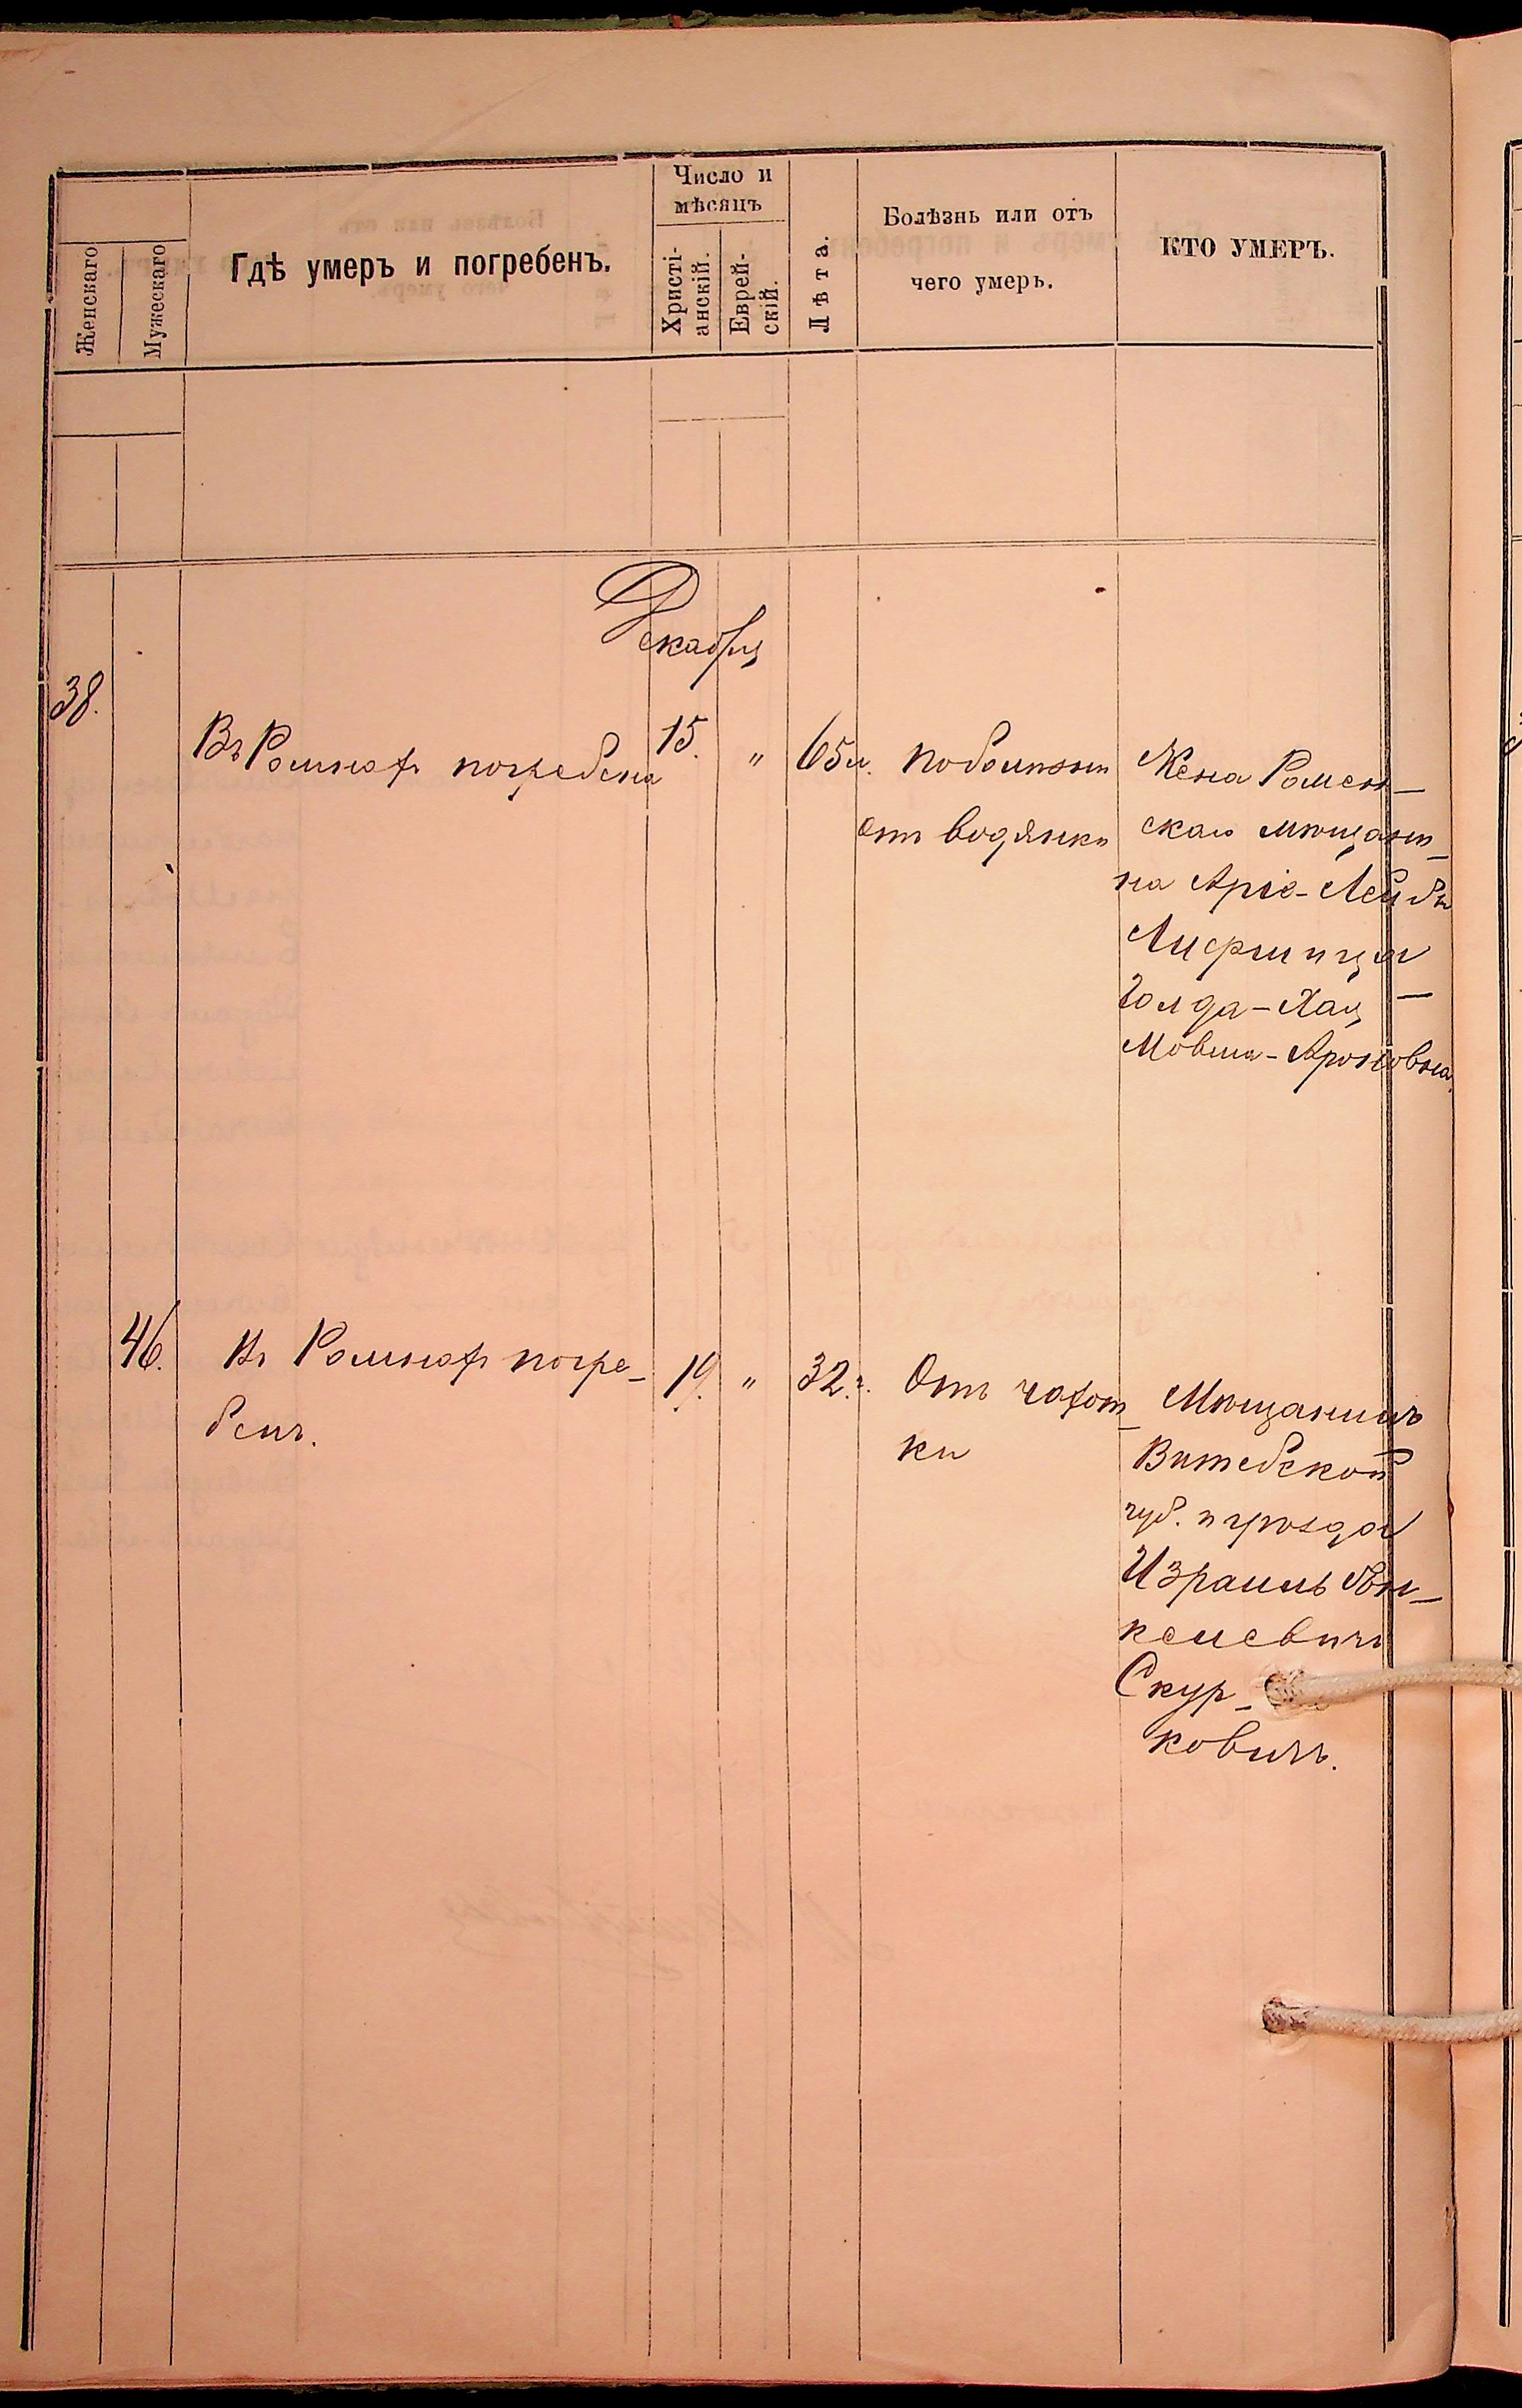 Число и
мѣсяцъ
Женскаго
Мужескаго
Гдѣ умеръ и погребенъ.
Христі-
анскій.
Еврей-
скій.
Лѣта.
Болѣзнь или отъ
чего умеръ.
КТО УМЕРЪ.
Декабрь
38.
Въ Ромнахъ погребена
15.
"
65 л.
Отъ водянки
Жена Ромен-
скаго мѣщани-
на Аріе-Лейбы
Лифшица
Голда-Хая
Мовша-Ароновна
46.
Въ Ромнахъ погре-
бенъ.
19.
"
32 г.
Отъ чахот-
ки
Мѣщанинъ
Витебской
губ. и уѣзда
Израиль Ян-
келевичъ
Скур-
ковичъ.